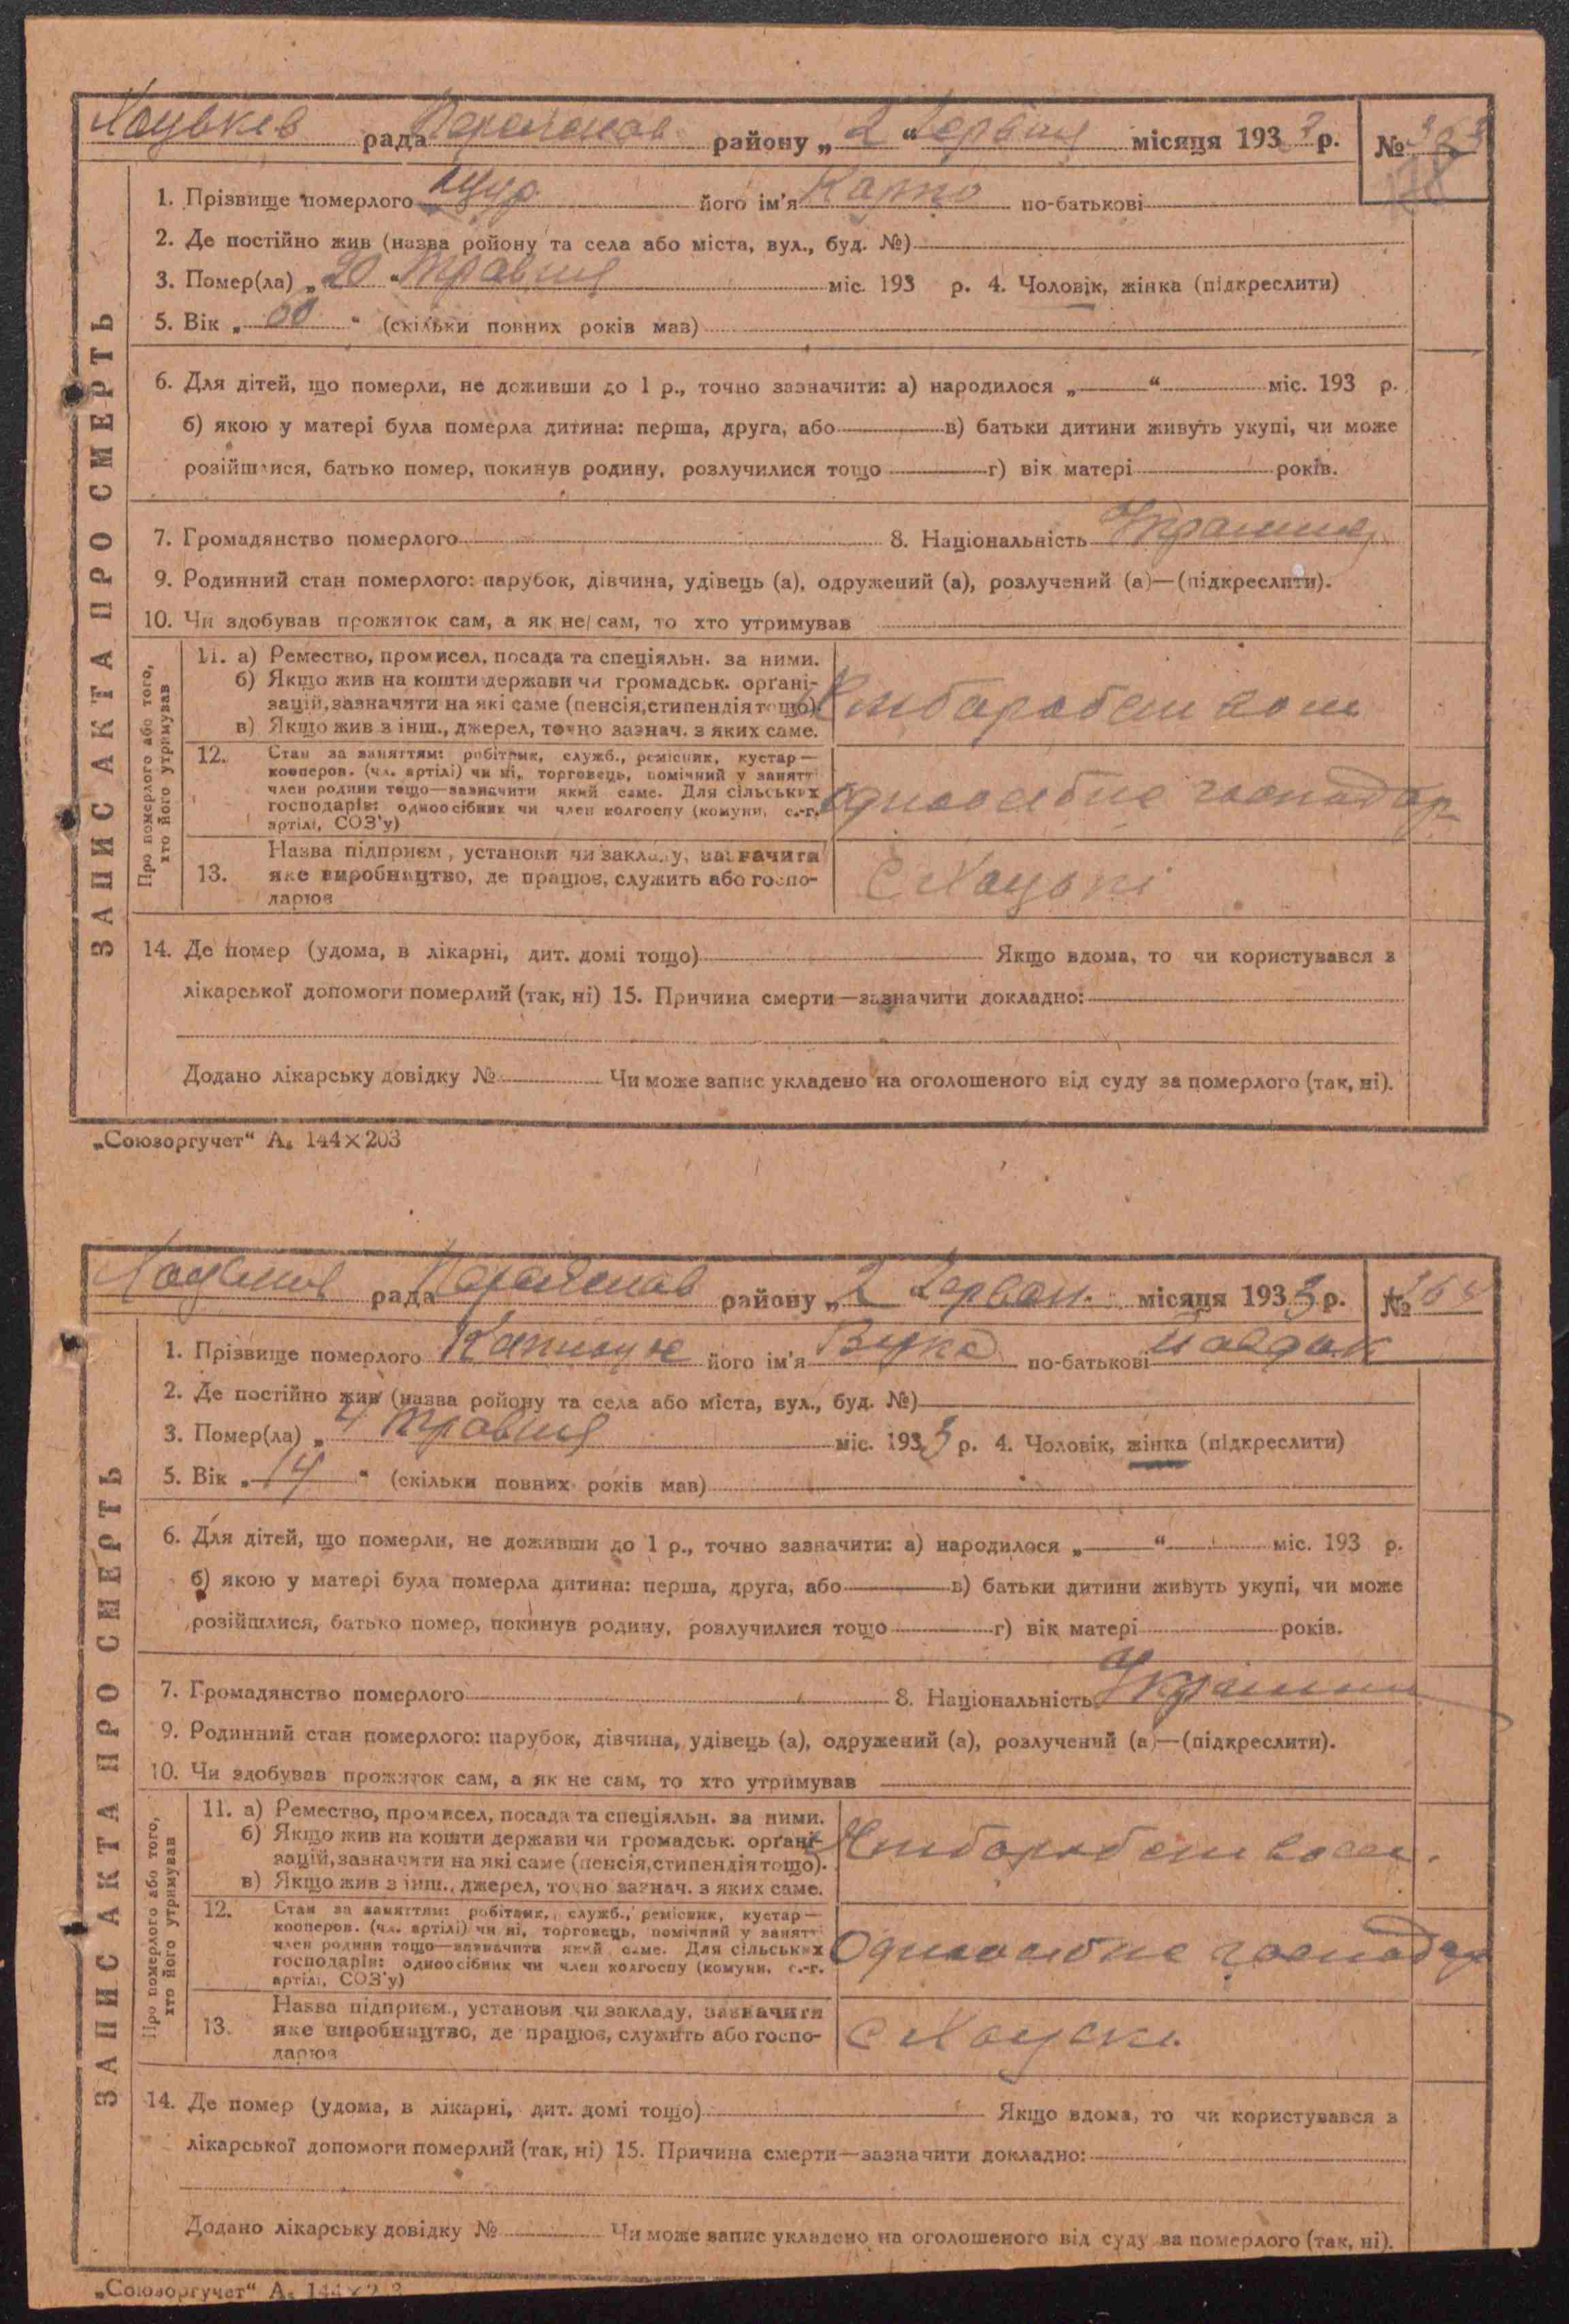 рада району „ 2 “ Червня місяця 1933 р. № 363
1. Прізвище померлого Цур його ім'я по-батькові
2. Де постійно жив (назва ройону та села або міста, вул., буд. №)
3. Помер(ла) „ 20 “ травня міс. 193 р. 4. Чоловік, жінка (підкреслити)
5. Вік „ 60 “ (скільки повних років мав)
6. Для дітей, що померли, не доживши до 1 р., точно зазначити: а) народилося „ “ міс. 193 р.
б) якою у матері була померла дитина: перша, друга, або в) батьки дитини живуть укупі, чи може
розійшлися, батько помер, покинув родину, розлучилися тощо г) вік матері років.
7. Громадянство померлого 8. Національність
9. Родинний стан померлого: парубок, дівчина, удівець (а), одружений (а), розлучений (а)—(підкреслити).
10. Чи здобував прожиток сам, а як не сам, то хто утримував
ЗАПИС АКТА ПРО СМЕРТЬ
Про померлого або того,
хто його утримував
11. а) Ремество, промисел, посада та спеціяльн. за ними.
б) Якщо жив на кошти держави чи громадськ. орґані-
зацій, зазначити на які саме (пенсія, стипендія тощо).
в) Якщо жив з інш., джерел, точно зазнач. з яких саме.
12. Стан за заняттям: робітник, служб., ремісник, кустар—
кооперов. (чл. артілі) чи ні, торговець, помічний у занятті
член родини тощо—зазначити який саме. Для сільських
господарів: одноосібник чи член колгоспу (комуни, с.-г.
артілі, СОЗ'у)
13. Назва підприєм., установи чи закладу, зазначити
яке виробництво, де працює, служить або госпо-
дарює
С Хоцькі
14. Де помер (удома, в лікарні, дит. домі тощо) Якщо вдома, то чи користувався з
лікарської допомоги померлий (так, ні) 15. Причина смерти—зазначити докладно:
Додано лікарську довідку № Чи може запис укладено на оголошеного від суду за померлого (так, ні).
„Союзоргучет“ А₆ 144×203
рада району „ 2 “ місяця 1933 р. № 364
1. Прізвище померлого його ім'я по-батькові
2. Де постійно жив (назва ройону та села або міста, вул., буд. №)
3. Помер(ла) „ 4 травня міс. 1933 р. 4. Чоловік, жінка (підкреслити)
5. Вік „ 14 “ (скільки повних років мав)
6. Для дітей, що померли, не доживши до 1 р., точно зазначити: а) народилося „ “ міс. 193 р.
б) якою у матері була померла дитина: перша, друга, або в) батьки дитини живуть укупі, чи може
розійшлися, батько помер, покинув родину, розлучилися тощо г) вік матері років.
7. Громадянство померлого 8. Національність
9. Родинний стан померлого: парубок, дівчина, удівець (а), одружений (а), розлучений (а)—(підкреслити).
10. Чи здобував прожиток сам, а як не сам, то хто утримував
ЗАПИС АКТА ПРО СМЕРТЬ
Про померлого або того,
хто його утримував
11. а) Ремество, промисел, посада та спеціяльн. за ними.
б) Якщо жив на кошти держави чи громадськ. орґані-
зацій, зазначити на які саме (пенсія, стипендія тощо).
в) Якщо жив з інш., джерел, точно зазнач. з яких саме.
12. Стан за заняттям: робітник, служб., ремісник, кустар—
кооперов. (чл. артілі) чи ні, торговець, помічний у занятті
член родини тощо—зазначити який саме. Для сільських
господарів: одноосібник чи член колгоспу (комуни, с.-г.
артілі, СОЗ'у)
13. Назва підприєм., установи чи закладу, зазначити
яке виробництво, де працює, служить або госпо-
дарює
14. Де помер (удома, в лікарні, дит. домі тощо) Якщо вдома, то чи користувався з
лікарської допомоги померлий (так, ні) 15. Причина смерти—зазначити докладно:
Додано лікарську довідку № Чи може запис укладено на оголошеного від суду за померлого (так, ні).
„Союзоргучет“ А₆ 144×203